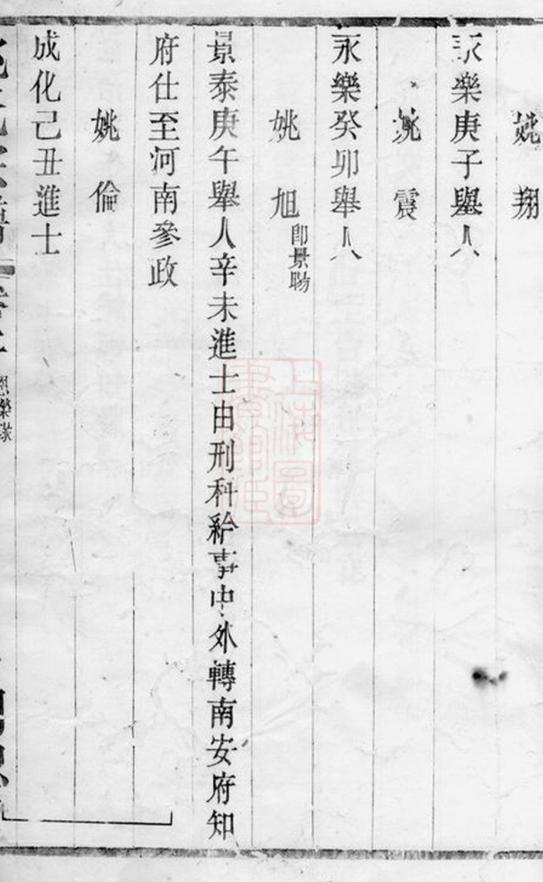 姚翔
永樂庚子舉人
姚震
永樂癸卯舉人
姚旭 即景暘
景泰庚午舉人辛未進士由刑科給事中外轉南安府知
府仕至河南參政
姚倫
成化己丑進士
恩榮錄